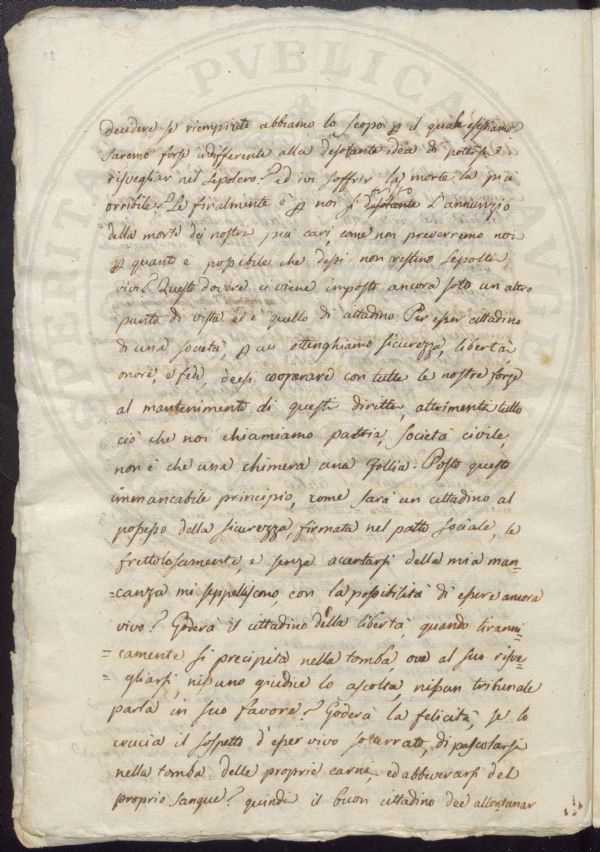 decidere se riempiuto abbiamo lo scopo p il quale esistiamo
saremo forse indifferenti alla desolante idea di potersi
risvegliar nel sepolcro? ed ivi soffrir la morte la più
orribile? Se finalmente è p noi sì tristo L'annunzio
della morte dei nostri più cari, come non preverremo noi
p quanto è possibile che dessi non restino sepolti
vivi? Questo dovere ci viene imposto ancora sotto un altro
punto di vista ed è quello di cittadino. Per esser cittadino
di una società, p cui ottenghiamo sicurezza, libertà
onore, e fede, deesi cooperare con tutte le nostre forze
al mantenimento di questi diritti, altrimenti tutto
ciò che noi chiamiamo patria, società civile,
non è che una chimera una follia. Posto questo
immancabile principio, come sarà un cittadino al
possesso della sicurezza, firmata nel patto sociale, se
frettolosamente, e senza accertarsi della mia man=
=canza mi seppelliscono, con la possibilità di essere ancora
vivo? Goderà il cittadino della libertà, quando tiranni=
=camente si precipita nella tomba ove al suo risve=
=gliarsi, nissuno giudice lo ascolta, nissun tribunale
parla in suo favore? Goderà la felicità, se lo
crucia il sospetto d'esser vivo sotterrato, di pascolarsi
nella tomba delle proprie carni, ed abbeverarsi del
proprio sangue? quindi il buon cittadino dee allontanar
PVBLICA